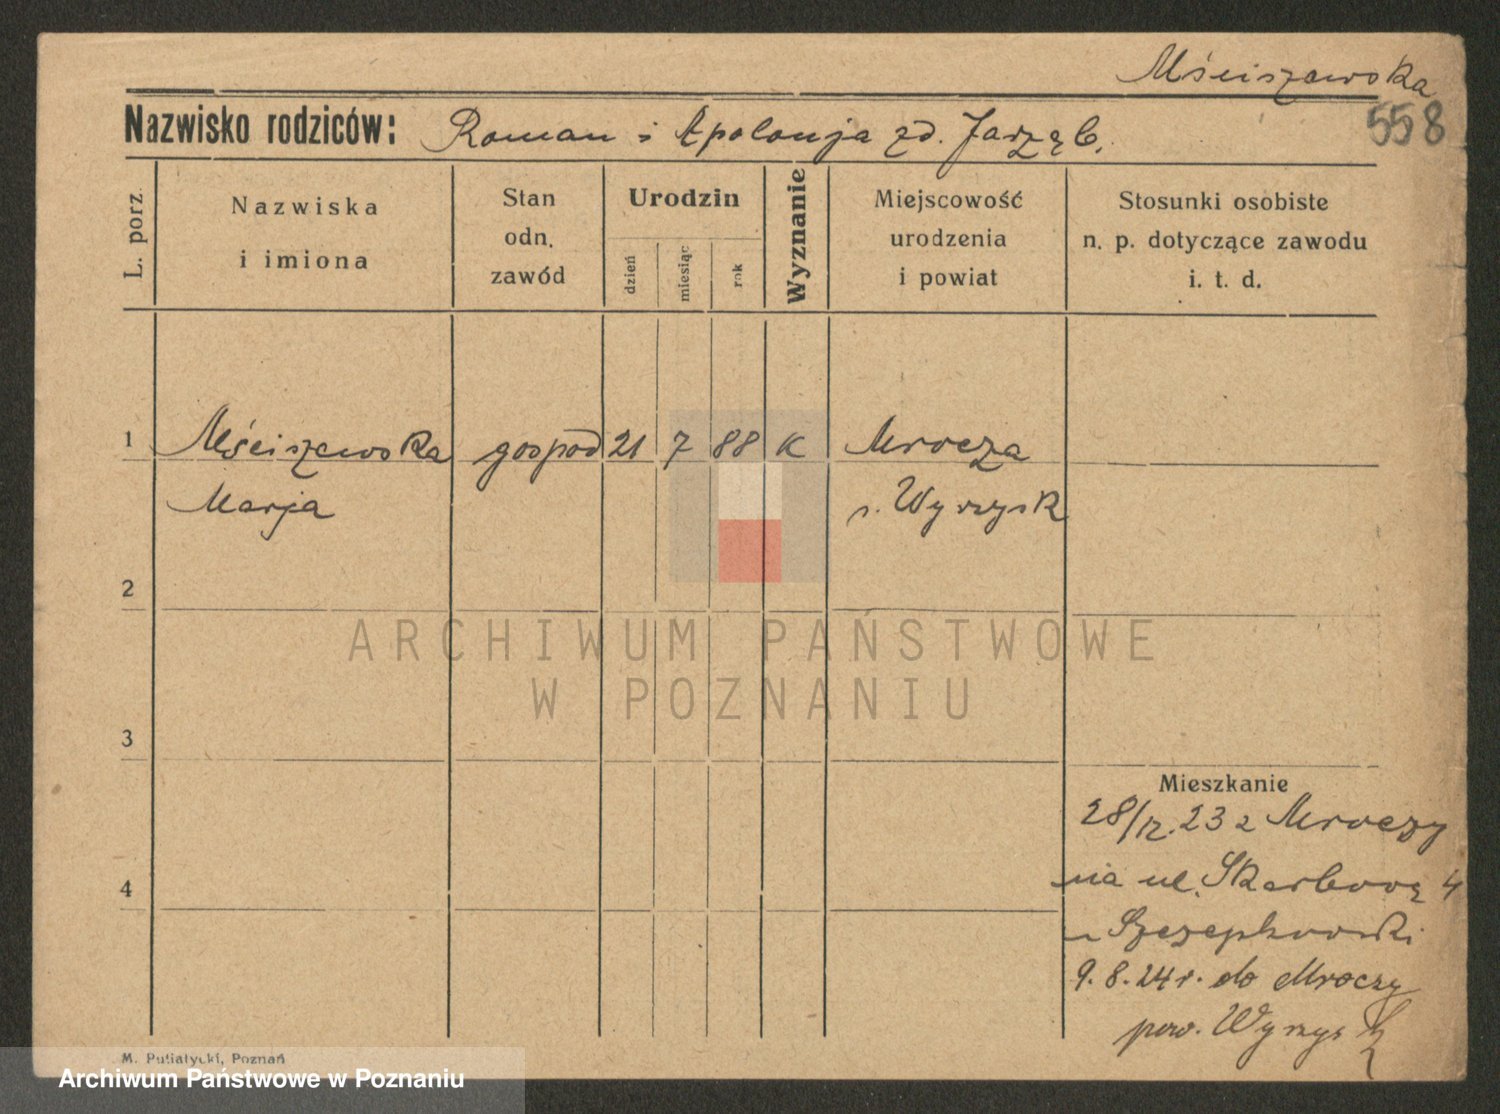 Mściszewska
558
Nazwisko rodziców: Roman i Apolonja zd. Jarząb.
L. porz.
Nazwiska i imiona
Stan odn. zawód
Urodzin
dzień
miesiąc
rok
Wyznanie
Miejscowość urodzenia i powiat
Stosunki osobiste n. p. dotyczące zawodu i. t. d.
1 Mściszewska gospod 21 7 88 K Mrocza
Marja Wyrzysk
2
ARCHIWUM PAŃSTWOWE
W POZNANIU
3
Mieszkanie
28/12.23 z Mroczy
4
na ul. Skarbową 4
u Szczepkowski
9.8.24 r. do Mroczy
pow. Wyrzysk
M. Putiatycki, Poznań
Archiwum Państwowe w Poznaniu